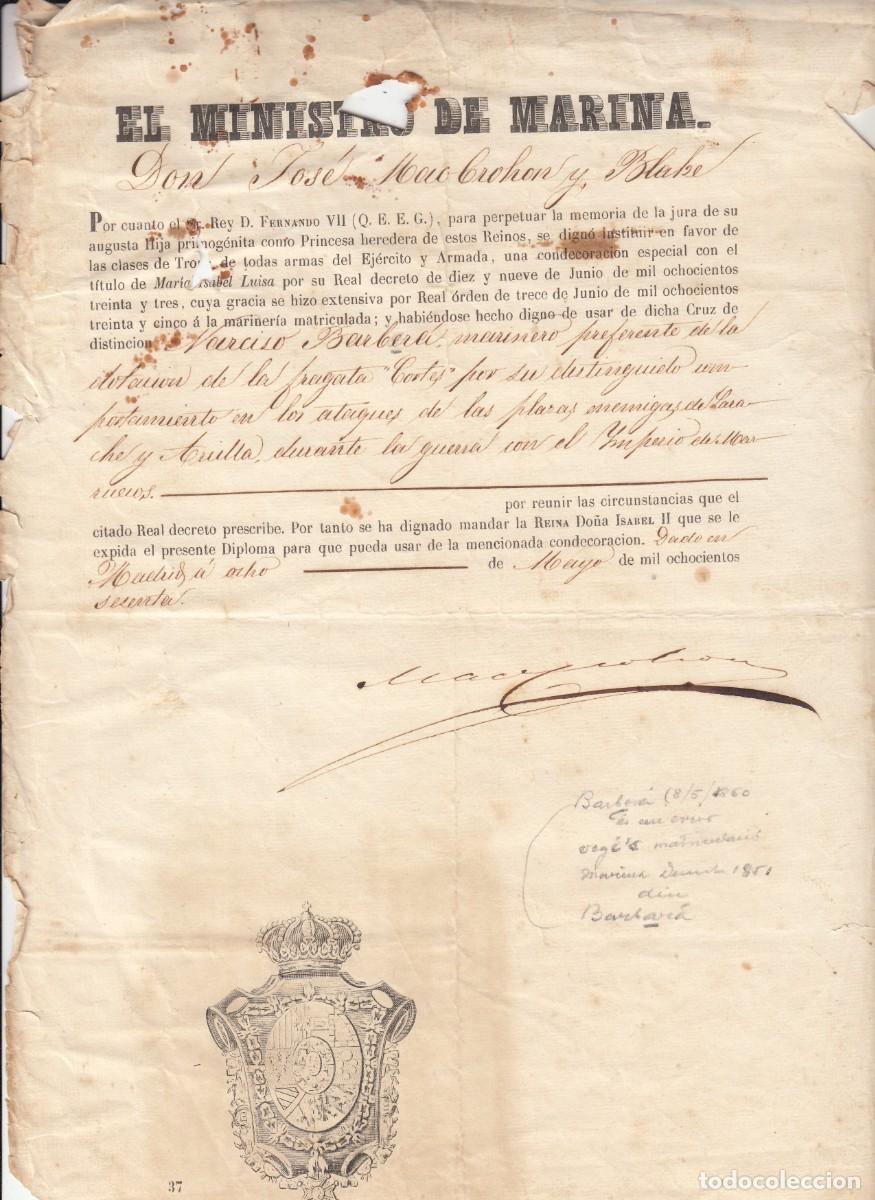 EL MINISTRO DE MARINA.
Don José Mac-Crohon y Blake
Por cuanto el Sr. Rey D. Fernando VII (Q. E. E. G.), para perpetuar la memoria de la jura de su
augusta Hija primogénita como Princesa heredera de estos Reinos, se dignó instituir en favor de
las clases de Tropa de todas armas del Ejército y Armada, una condecoracion especial con el
título de María Isabel Luisa por su Real decreto de diez y nueve de Junio de mil ochocientos
treinta y tres, cuya gracia se hizo extensiva por Real órden de trece de Junio de mil ochocientos
treinta y cinco á la marinería matriculada; y habiéndose hecho digno de usar de dicha Cruz de
distincion Narciso Barberá, marinero preferente de la
dotacion de la fragata "Cortes" por su distinguido com
portamiento en los ataques de las plazas enemigas de Lara-
che y Arcilla, durante la guerra con el Imperio de Mar-
ruecos.
por reunir las circunstancias que el
citado Real decreto prescribe. Por tanto se ha dignado mandar la Reina Doña Isabel II que se le
expida el presente Diploma para que pueda usar de la mencionada condecoracion. Dado en
Madrid á ocho de Mayo de mil ochocientos
sesenta.
Mac-Crohon
Barberá (8/5/1860
és un error
vegi's matriculació
marina 1851
diu
Barbará
37
todocoleccion